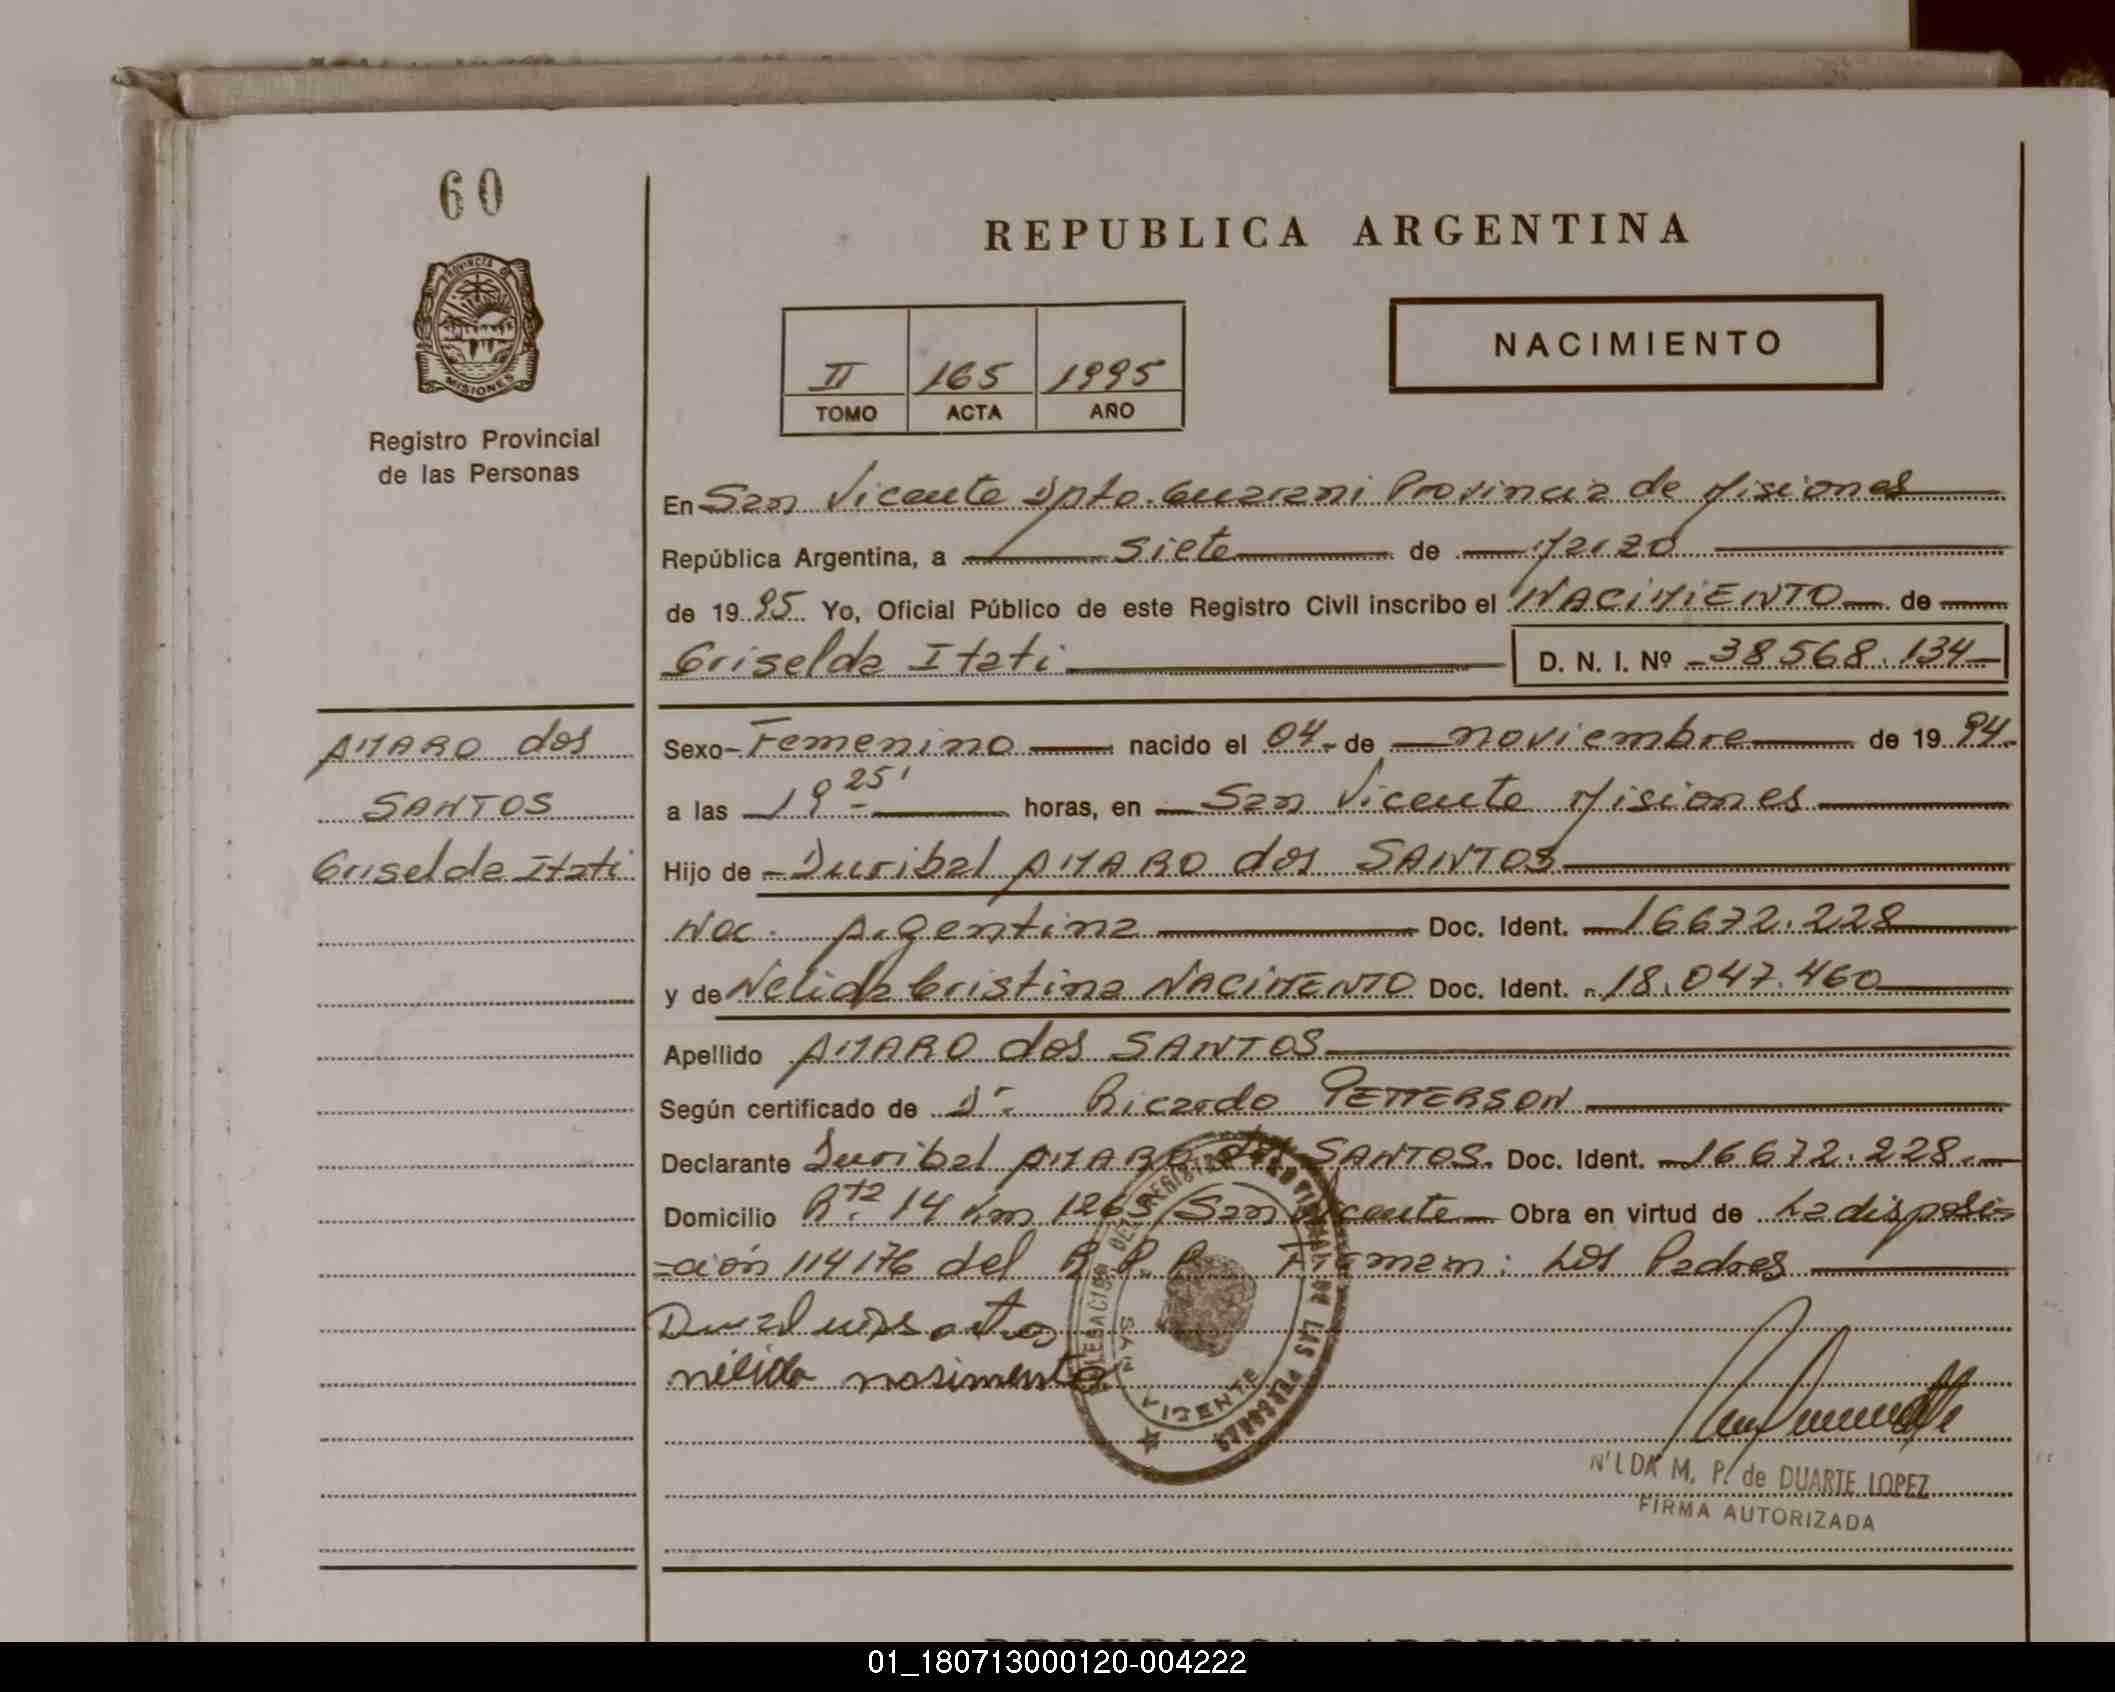 60
REPUBLICA ARGENTINA
PROVINCIA DE
MISIONES
Registro Provincial
de las Personas
II 165 1995
TOMO ACTA AÑO
NACIMIENTO
En San Vicente Dpto. Guarani Provincia de Misiones
República Argentina, a siete de Marzo
de 1995 Yo, Oficial Público de este Registro Civil inscribo el NACIMIENTO de
Griselda Itati D. N. I. Nº 38568.134
AMARO dos
SANTOS
Griselda Itati
Sexo Femenino nacido el 04 de noviembre de 1994
a las 19 25' horas, en San Vicente Misiones
Hijo de Duribal AMARO dos SANTOS
Nac. Argentina Doc. Ident. 16672.228
y de Nelida Cristina NACIMENTO Doc. Ident. 18.047.460
Apellido AMARO dos SANTOS
Según certificado de Dr. Ricardo PETTERSON
Declarante Duribal AMARO dos SANTOS. Doc. Ident. 16672.228.
Domicilio Rta. 14 Km 1265 San Vicente Obra en virtud de La disposi=
=ción 114176 del R. P. P. Firman: Los Padres
nélida nasimento
SAN VICENTE
DE LAS PERSONAS
NILDA M. P. de DUARTE LOPEZ
FIRMA AUTORIZADA
01_180713000120-004222